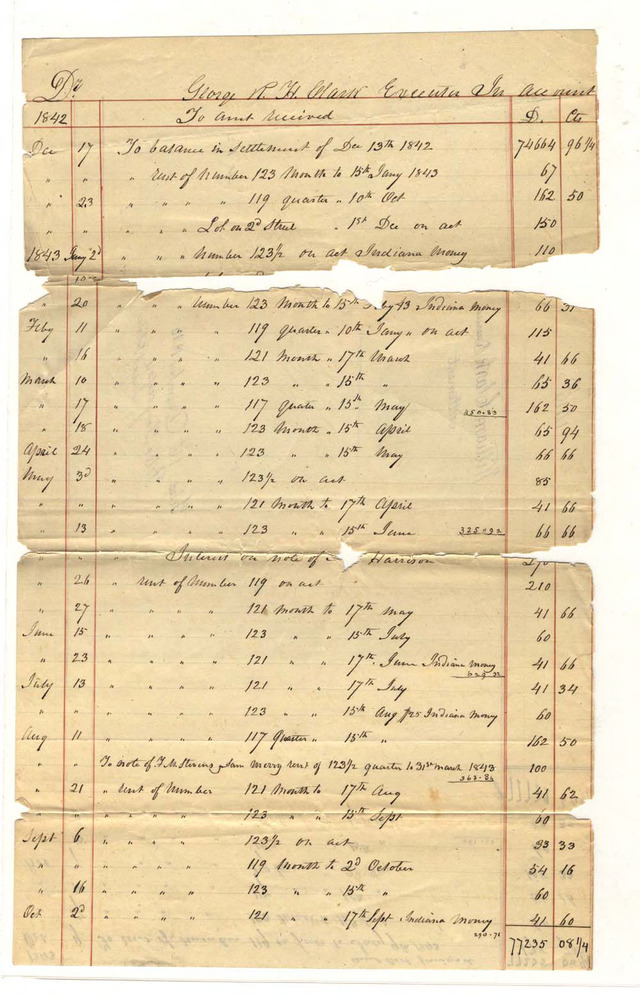 Dr George R. H. Clark Executor In account
1842 To amt received D. Cts
Dec 17 To balance in settlement of Dec 13th 1842 74664 96 1/4
" " " rent of Number 123 Month to 15th Jany 1843 67
" 23 " " " " 119 quarter " 10th Oct 162 50
" " " " " Lot on 2d Street " 1st Dec on act 150
1843 Jany 2d " " " Number 123 1/2 on act Indiana Money 110
" 20 " " " Number 123 Month to 15th Feby 43 Indiana Money 66 31
Feby 11 " " " " 119 quarter " 10th Jany " on act 115
" 16 " " " " 121 Month " 17th March 41 66
March 10 " " " " 123 " " 15th " 65 36
" 17 " " " " 117 quater " 15th May 350.83 162 50
" 18 " " " " 123 Month " 15th April 65 94
April 24 " " " " 123 " " 15th May 66 66
May 3d " " " " 123 1/2 on act 85
" " " " " " 121 Month to 17th April 41 66
" 13 " " " " 123 " " 15th June 325.92 66 66
" " " Interest on note of Harrison
" 26 " rent of Number 119 on act 210
" 27 " " " " 121 Month to 17th May 41 66
June 15 " " " " 123 " " 15th July 60
" 23 " " " " 121 " " 17th June Indiana money 41 66
July 13 " " " " 121 " " 17th July 41 34
" " " " " " 123 " " 15th Aug $25 Indiana Money 60
Aug 11 " " " " 117 Quarter " 15th " 162 50
" " To note of Merry rent of 123 1/2 quarter to 31st March 1843 100
" 21 " rent of Number 121 Month to 17th Aug 41 62
" " " " " " 123 " " 15th Sept 60
Sept 6 " " " " 123 1/2 on act 33 33
" " " " " " 119 Month to 2d October 54 16
" 16 " " " " 123 " " 15th " 60
Oct 2d " " " " 121 " 17th Sept Indiana Money 41 60
77235 08 1/4